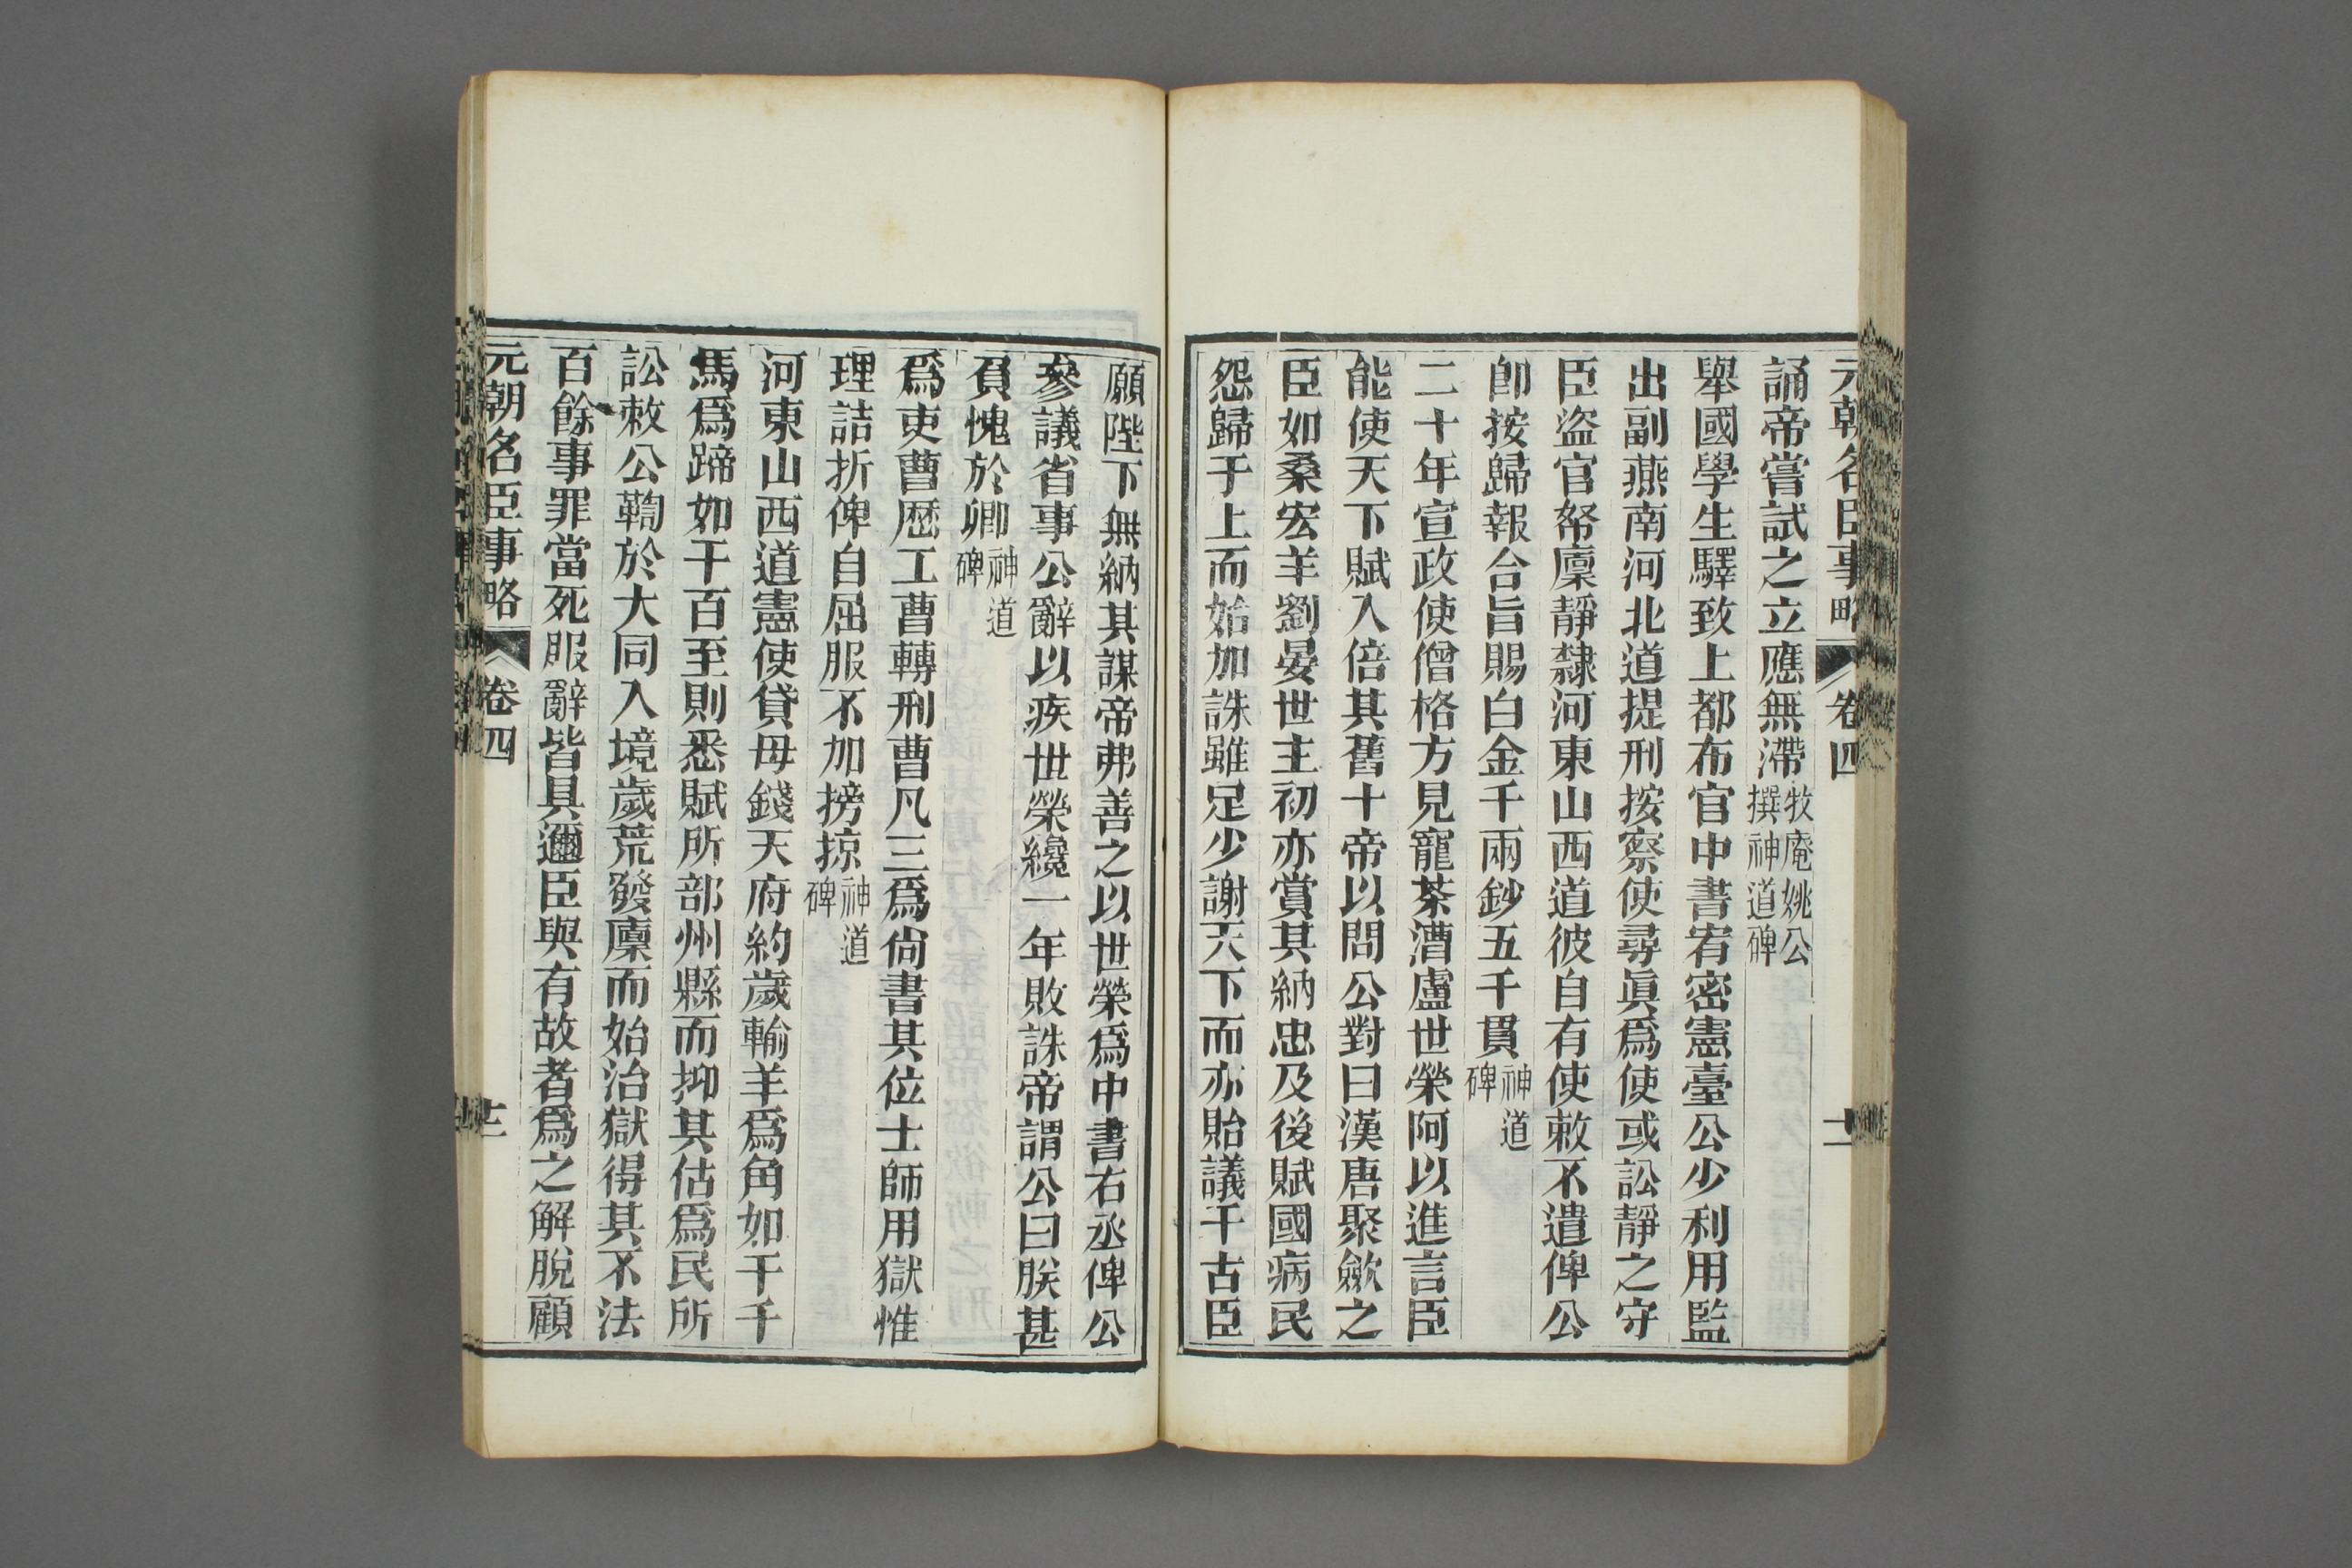 元朝名臣事略 卷四 十一
誦帝嘗試之立應無滯牧庵姚公撰神道碑
舉國學生驛致上都布官中書宥密憲臺公少利用監
出副燕南河北道提刑按察使尋眞爲使或訟靜之守
臣盜官帑廩靜隸河東山西道彼自有使敕不遣俾公
卽按歸報合旨賜白金千兩鈔五千貫神道碑
二十年宣政使僧格方見寵荼漕盧世榮阿以進言臣
能使天下賦入倍其舊十帝以問公對曰漢唐聚歛之
臣如桑宏羊劉晏世主初亦賞其納忠及後賦國病民
怨歸于上而始加誅雖足少謝天下而亦貽議千古臣
願陛下無納其謀帝弗善之以世榮爲中書右丞俾公
參議省事公辭以疾世榮纔一年敗誅帝謂公曰朕甚
負愧於卿神道碑
爲吏曹歷工曹轉刑曹凡三爲尙書其位士師用獄惟
理詰折俾自屈服不加搒掠神道碑
河東山西道憲使貸母錢天府約歲輸羊爲角如干千
馬爲蹄如干百至則悉賦所部州縣而抑其估爲民所
訟敕公鞫於大同入境歲荒發廩而始治獄得其不法
百餘事罪當死服辭皆具邇臣與有故者爲之解脫顧
元朝名臣事略 卷四 十二